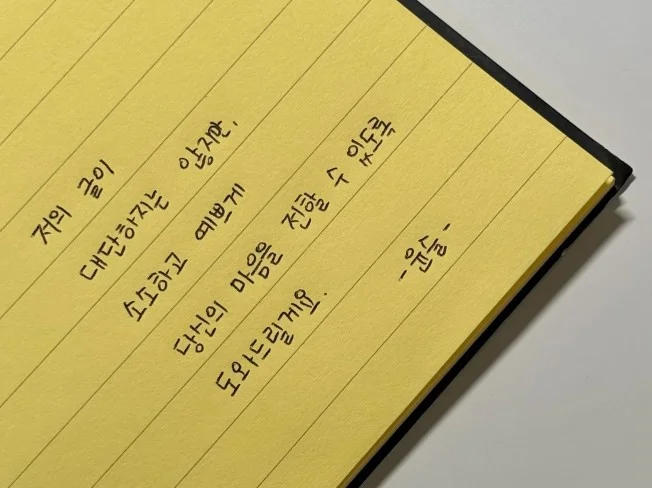 저의 글이
대단하지는 않지만,
소소하고 예쁘게
당신의 마음을 전할 수 있도록
도와드릴게요.
-윤슬-